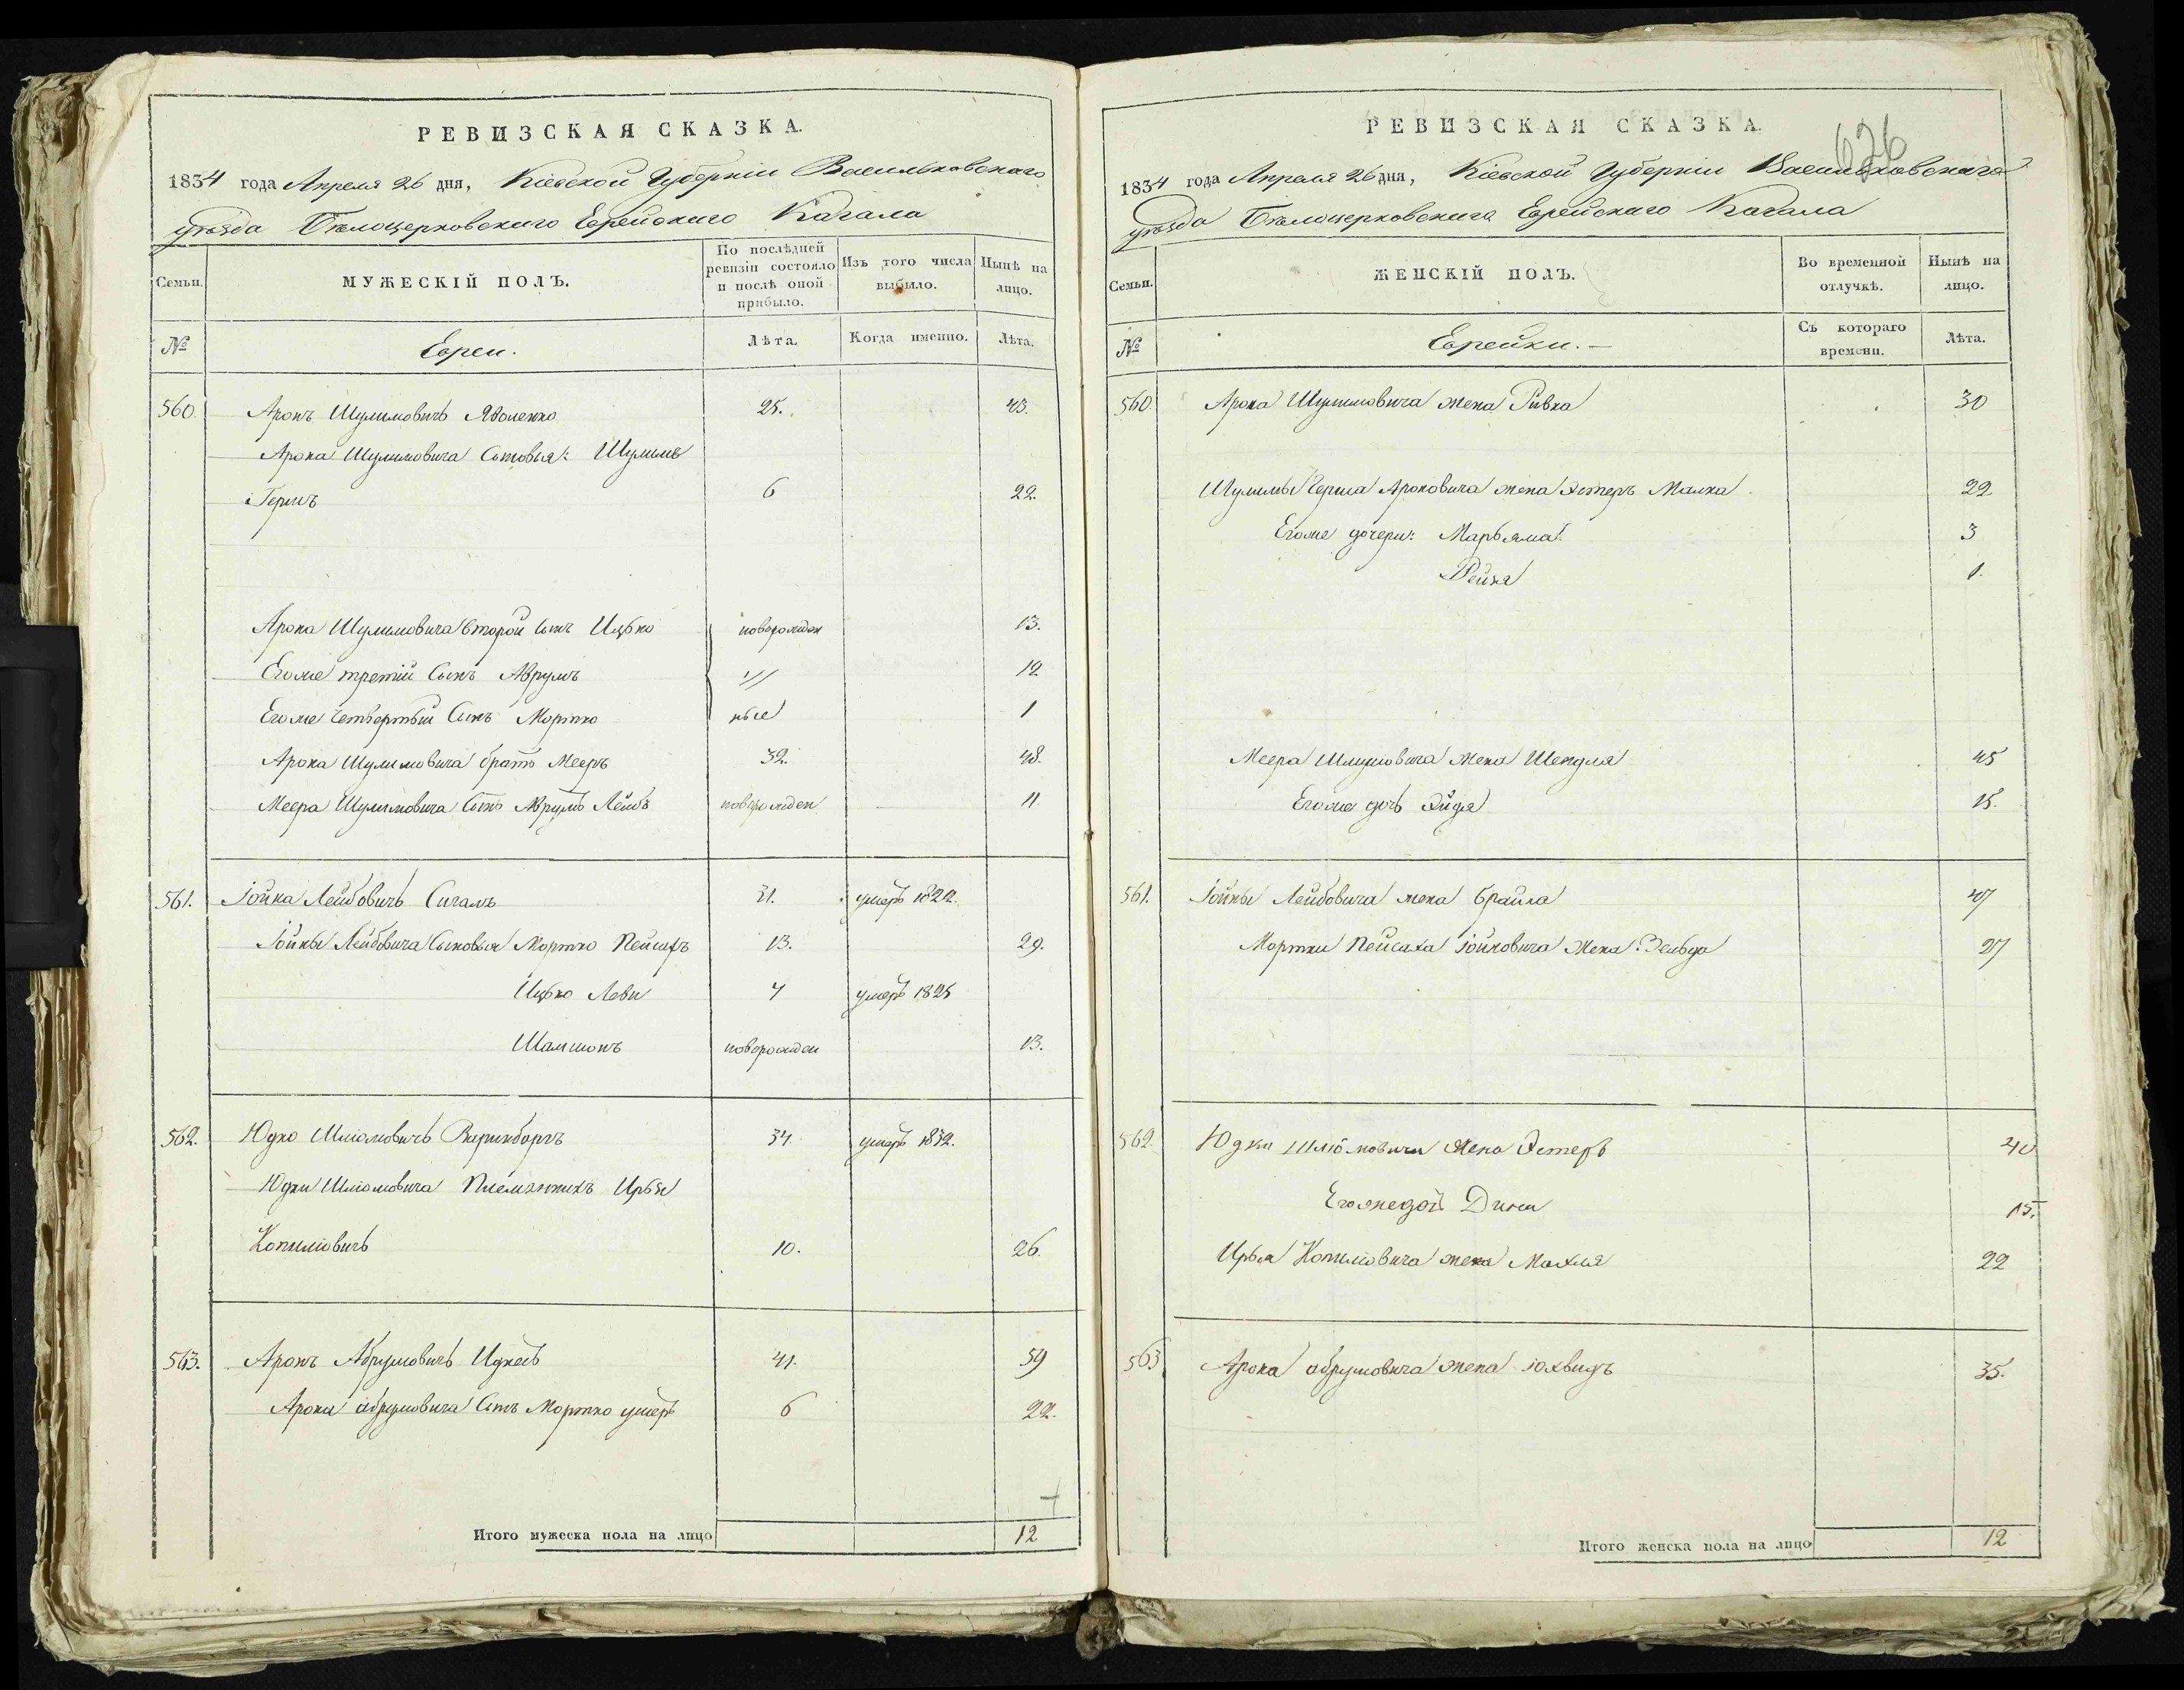 РЕВИЗСКАЯ СКАЗКА.
1834 года Апреля 26 дня, Кіевской Губерніи Васильковскаго
уѣзда Бѣлоцерковскаго Еврейскаго Кагала
Семьи.
МУЖЕСКІЙ ПОЛЪ.
По послѣдней ревизіи состояло и послѣ оной прибыло.
Изъ того числа выбыло.
Нынѣ на лицо.
№
Евреи.
Лѣта.
Когда именно.
Лѣта.
560. Аронъ Шулимовичъ 25. 43.
Арона Шулимовича Сыновья: Шулимъ
Гершъ 6 22.
Арона Шулимовича второй сынъ Ицько новорожден 13.
Егоже третій Сынъ Аврумъ " 12
Егоже Четвертый Сынъ Мортко ные 1
Арона Шулимовича братъ Мееръ 32. 48.
Меера Шулимовича Сынъ Аврумъ Лейбъ новорожден 11.
561. Іойна Лейбовичъ Сигалъ 31. умеръ 1822.
Іойны Лейбовича Сыновья Мортко Пейсахъ 13. 29.
Ицько Леви 4 умеръ 1825
Шамшонъ новорожден 13.
562. Юдко Шліомовичъ 34. умеръ 1832.
Юдки Шліомовича Племянникъ
Копиліовичъ 10. 26.
563. Аронъ Абрумовичъ 41. 59
Арона абрумовича Сынъ Мортко умеръ 6 22.
Итого мужеска пола на лицо 12
626
РЕВИЗСКАЯ СКАЗКА.
1834 года Апреля 26 дня, Кіевской Губерніи Васильковскаго
уѣзда Бѣлоцерковскаго Еврейскаго Кагала
Семьи.
ЖЕНСКІЙ ПОЛЪ.
Во временной отлучкѣ.
Нынѣ на лицо.
№
Еврейки.
Съ котораго времени.
Лѣта.
560. Арона Шулимовича жена Ривка 30
Шулимы Герша Ароновича жена Эстеръ Малка 22
Егоже дочери: Марьяма 3
Рейзя 1.
Меера Шлиумовича жена Шендля 45
Егоже дочь Эйдя 15.
561. Іойны Лейбовича жена брайна 47
Мортки Пейсаха Іойновича Жена Зельда 27
562. Юдки Шліомовича жена Эстеръ 40
Егожедочь Дина 15.
Копиліовича жена Махля 22
563 Арона абрумовича жена юхвидъ 35.
Итого женска пола на лицо 12